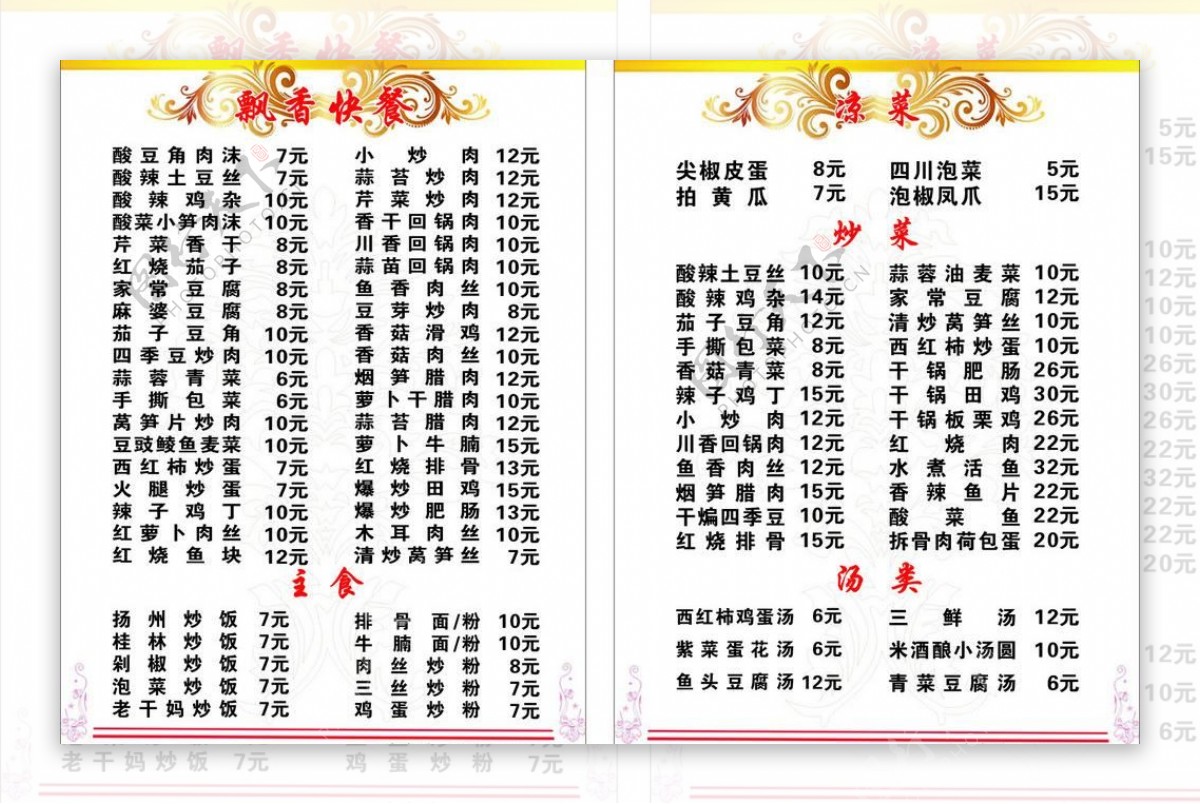 飘香快餐
酸豆角肉沫 7元 小炒肉 12元
酸辣土豆丝 7元 蒜苔炒肉 12元
酸辣鸡杂 10元 芹菜炒肉 12元
酸菜小笋肉沫 10元 香干回锅肉 10元
芹菜香干 8元 川香回锅肉 10元
红烧茄子 8元 蒜苗回锅肉 10元
家常豆腐 8元 鱼香肉丝 10元
麻婆豆腐 8元 豆芽炒肉 8元
茄子豆角 10元 香菇滑鸡 12元
四季豆炒肉 10元 香菇肉丝 10元
蒜蓉青菜 6元 烟笋腊肉 12元
手撕包菜 6元 萝卜干腊肉 10元
莴笋片炒肉 10元 蒜苔腊肉 12元
豆豉鲮鱼麦菜 10元 萝卜牛腩 15元
西红柿炒蛋 7元 红烧排骨 13元
火腿炒蛋 7元 爆炒田鸡 15元
辣子鸡丁 10元 爆炒肥肠 13元
红萝卜肉丝 10元 木耳肉丝 10元
红烧鱼块 12元 清炒莴笋丝 7元
主食
扬州炒饭 7元 排骨面/粉 10元
桂林炒饭 7元 牛腩面/粉 10元
剁椒炒饭 7元 肉丝炒粉 8元
泡菜炒饭 7元 三丝炒粉 7元
老干妈炒饭 7元 鸡蛋炒粉 7元
凉菜
尖椒皮蛋 8元 四川泡菜 5元
拍黄瓜 7元 泡椒凤爪 15元
炒菜
酸辣土豆丝 10元 蒜蓉油麦菜 10元
酸辣鸡杂 14元 家常豆腐 12元
茄子豆角 12元 清炒莴笋丝 10元
手撕包菜 8元 西红柿炒蛋 10元
香菇青菜 8元 干锅肥肠 26元
辣子鸡丁 15元 干锅田鸡 30元
小炒肉 12元 干锅板栗鸡 26元
川香回锅肉 12元 红烧肉 22元
鱼香肉丝 12元 水煮活鱼 32元
烟笋腊肉 15元 香辣鱼片 22元
干煸四季豆 10元 酸菜鱼 22元
红烧排骨 15元 拆骨肉荷包蛋 20元
汤类
西红柿鸡蛋汤 6元 三鲜汤 12元
紫菜蛋花汤 6元 米酒酿小汤圆 10元
鱼头豆腐汤 12元 青菜豆腐汤 6元